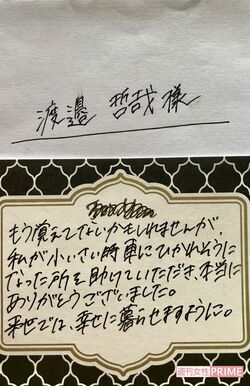 渡邉哲哉様
もう覚えてないかもしれませんが、
私が小いさい時車にひかれそうに
なった所を助けていただき本当に
ありがとうございました。
来世では、幸せに暮らせますように。
週刊女性PRIME